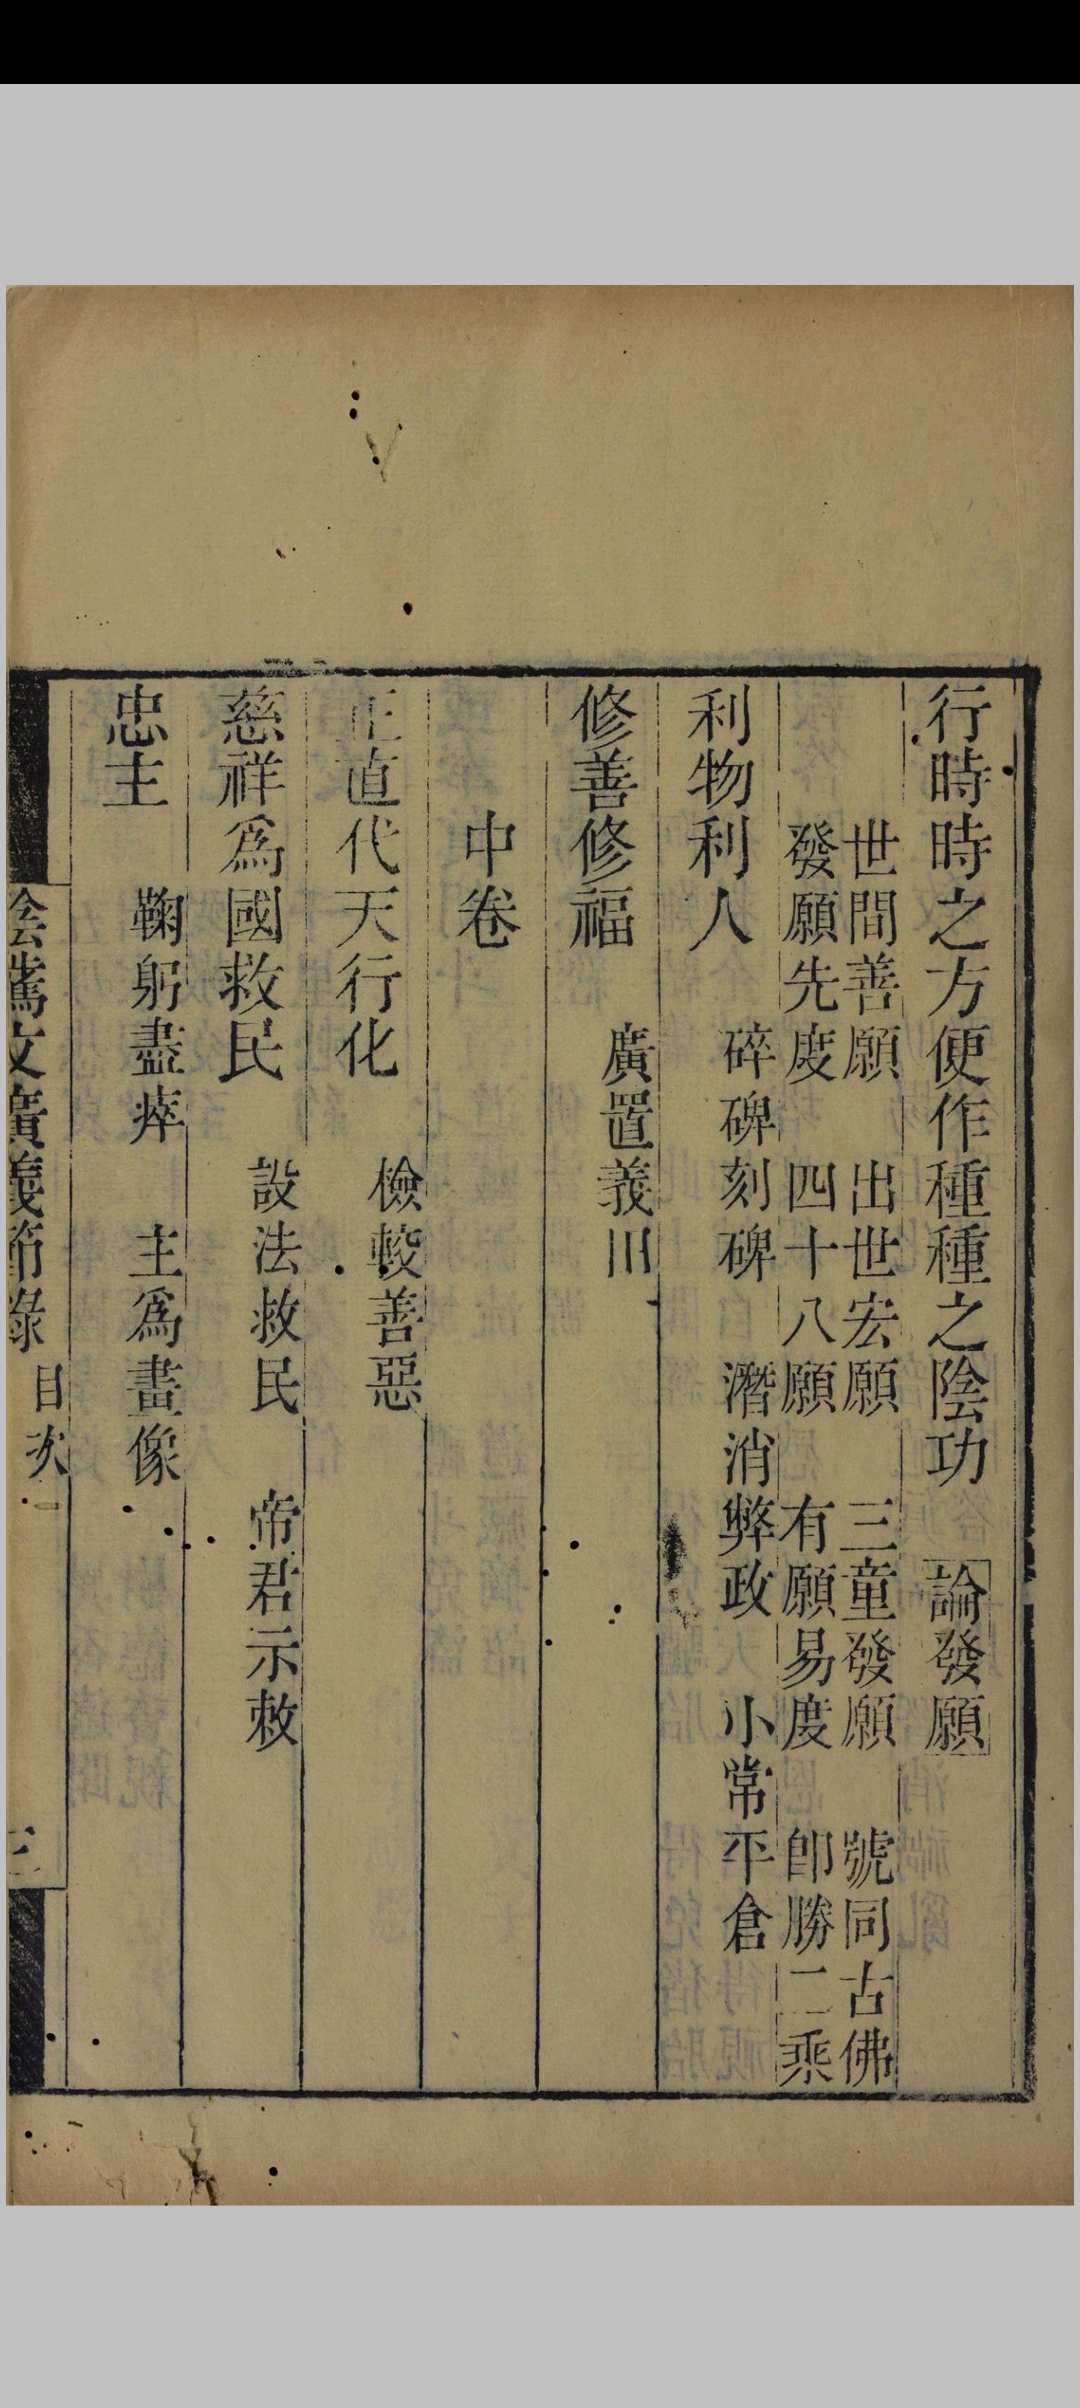 行時時之方便作種種之陰功　論發願
世間善願　出世宏願　三童發願　號同古佛
發願先度　四十八願　有願易度　卽勝二乘
利物利人　碎碑刻碑　潛消弊政　小常平倉
修善修福　廣置義田
中卷
正直代天行化　檢較善惡
慈祥爲國救民　設法救民　帝君示救
忠主　鞠躬盡瘁　主爲畫像
陰騭文廣義節錄　目次　三